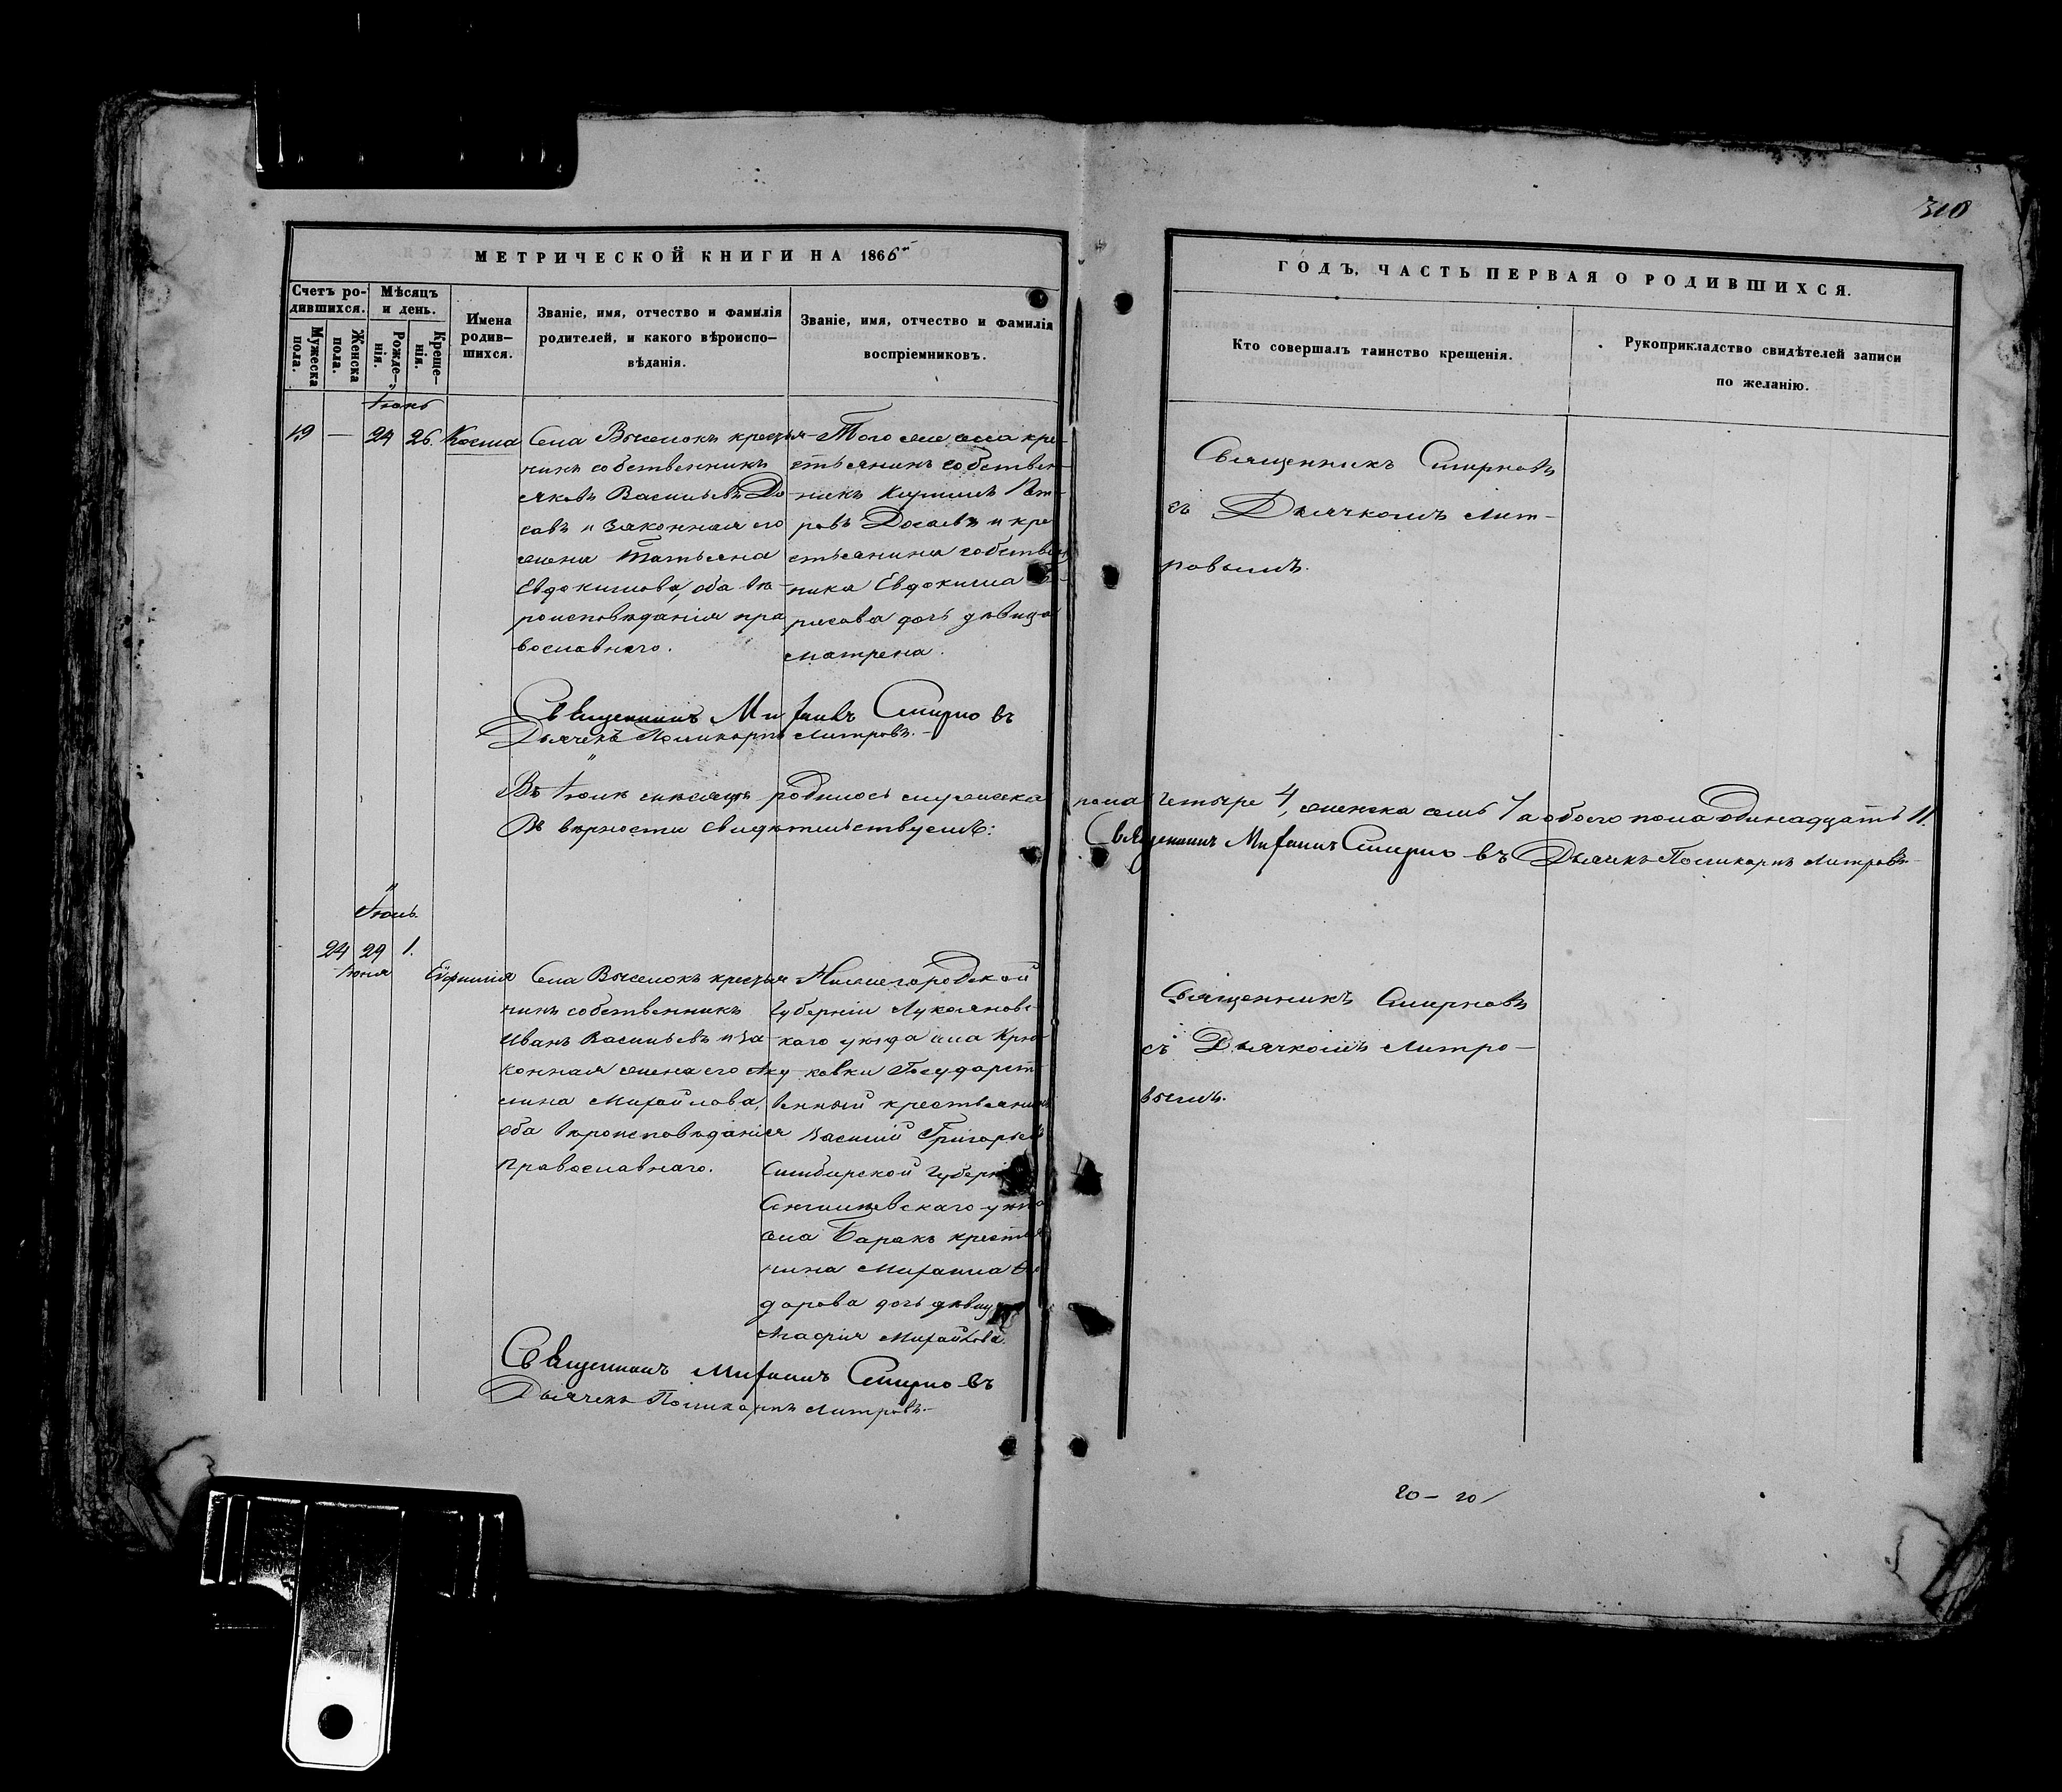 310
МЕТРИЧЕСКОЙ КНИГИ НА 1866й
ГОДЪ, ЧАСТЬ ПЕРВАЯ О РОДИВШИХСЯ.
Счетъ ро-
дившихся.
Мужеска
пола.
Женска
пола.
Мѣсяцъ
и день.
Рожде-
нія.
Креще-
нія.
Имена
родив-
шихся.
Званіе, имя, отчество и фамилія
родителей, и какого вѣроиспо-
вѣданія.
Званіе, имя, отчество и фамилія
воспріемниковъ.
Кто совершалъ таинство крещенія.
Рукоприкладство свидѣтелей записи
по желанію.
Іюнь
19 — 24 26. Косма
Села Выселокъ крестья-
нинъ собственникъ
Яковъ Васильевъ До
савъ и законная его
жена Татьяна
Евдокимова, оба вѣ-
роисповѣданія пра
вославнаго.
Того же села кре-
стьянинъ собствен-
никъ Пет-
ровъ Досаевъ и кре
стьянина собствен
ника Евдокима
рисова дочь дѣвица
Матрена.
Священникъ Смирновъ
съ Дьячкомъ Лит-
ровымъ.
Священникъ Михаилъ Смирновъ
Дьячекъ Поликарпъ Литровъ.
Въ Іюнѣ мѣсяцѣ родилось мужеска пола четыре 4, женска семь 7 а обоего пола одинадцать 11.
Въ вѣрности свидѣтельствуемъ:
Священникъ Михаилъ Смирновъ Дьячекъ Поликарпъ Литровъ
Іюль.
24 29 1.
Іюня
Евфимія
Села Выселокъ крестья
нинъ собственникъ
Иванъ Васильевъ и за
конная жена его Аку
лина Михайлова,
оба вѣроисповѣданія
православнаго.
Нижегородской
Губерніи Лукояновс
каго уѣзда села Крю
ковки Государст
венный крестьянинъ
Василій Григорьевъ
Симбирской Губерніи
Сенгилѣевскаго уѣзда
села Баракъ крестья
нина Михаила Ѳе
дорова дочь дѣвица
Марія Михайлова.
Священникъ Смирновъ
съ Дьячкомъ Литро-
вымъ.
Священникъ Михаилъ Смирновъ
Дьячекъ Поликарпъ Литровъ.
20 — 20